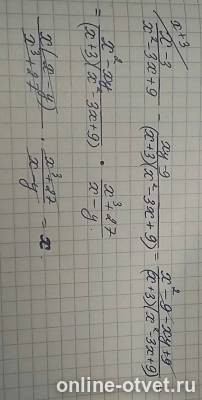 x+3
x-3 / x²-3x+9 - xy-9 / (x+3)(x²-3x+9) = x²-9-xy+9 / (x+3)(x²-3x+9)
= x²-xy / (x+3)(x²-3x+9) · x³+27 / x-y
x(x-y) / x³+27 · x³+27 / x-y = x.
online-otvet.ru